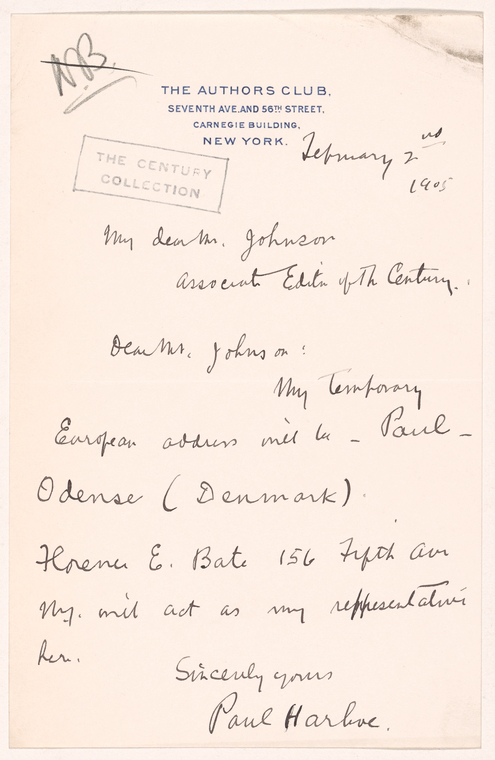 N.B.
THE AUTHORS CLUB,
SEVENTH AVE. AND 56TH STREET,
CARNEGIE BUILDING,
NEW YORK.
February 2nd
1905
THE CENTURY
COLLECTION
My dear Mr. Johnson
Associate Editor of The Century.
Dear Mr. Johnson:
My temporary
European address will be – Paul –
Odense (Denmark).
Florence E. Bate 156 Fifth Ave
N.Y. will act as my representative
here.
Sincerely yours
Paul Harboe.